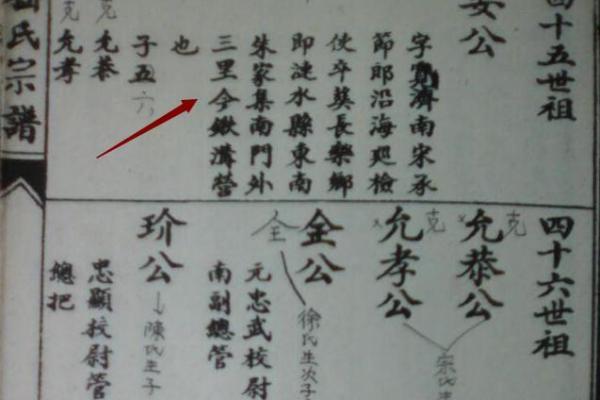 四十五世祖
安公
字寬濟南宋承
節郎沿海廵檢
使卒葵長樂鄉
即漣水縣東南
朱家集南門外
三里今鍬溝營
也
子五六
克允恭
克允孝
氏宗譜
四十六世祖
克允恭公
克允孝公
宗氏生
全金公
徐氏生次子
元忠武校尉
南副總管
玠公
陳氏生子
忠顯校尉管
總把